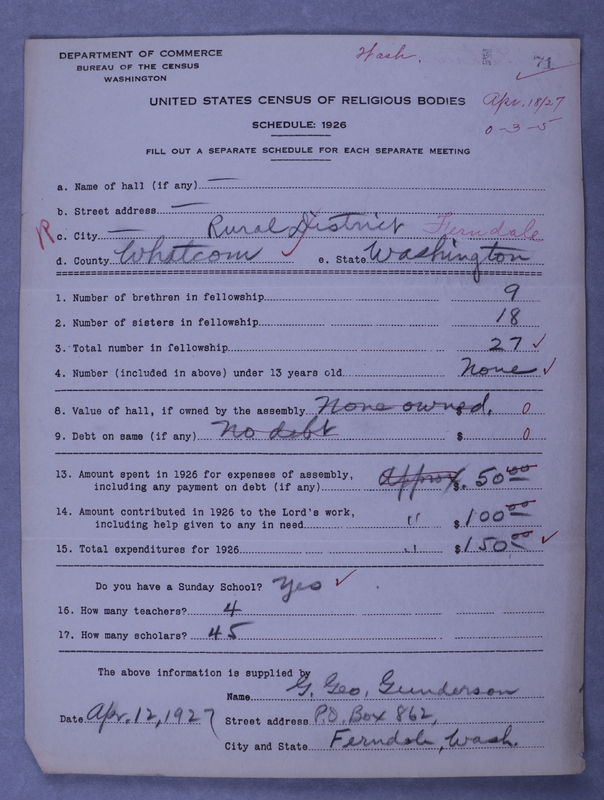 DEPARTMENT OF COMMERCE
BUREAU OF THE CENSUS
WASHINGTON
Wash.
71
UNITED STATES CENSUS OF RELIGIOUS BODIES
Apr. 18/27
SCHEDULE: 1926
0-3-5
FILL OUT A SEPARATE SCHEDULE FOR EACH SEPARATE MEETING
a. Name of hall (if any) —
b. Street address —
R
c. City — Rural District Ferndale
d. County Whatcom e. State Washington
1. Number of brethren in fellowship 9
2. Number of sisters in fellowship 18
3. Total number in fellowship 27
4. Number (included in above) under 13 years old None
8. Value of hall, if owned by the assembly None owned. $ 0
9. Debt on same (if any) No debt $ 0
13. Amount spent in 1926 for expenses of assembly,
including any payment on debt (if any) Approx $ 50 00
14. Amount contributed in 1926 to the Lord's work,
including help given to any in need " $ 100 00
15. Total expenditures for 1926 " $ 150 00
Do you have a Sunday School? Yes
16. How many teachers? 4
17. How many scholars? 45
The above information is supplied by
Name G. Geo, Gunderson
Date Apr. 12, 1927 Street address P.O. Box 862,
City and State Ferndale, Wash.